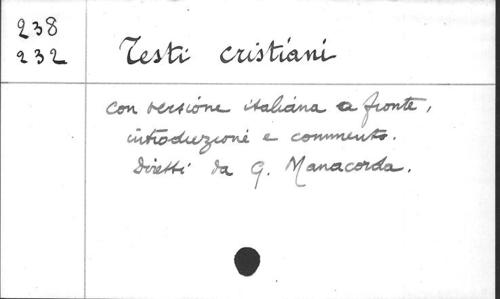 238
232
Testi cristiani
con versione italiana a fronte,
introduzioni e commento.
Diretti da G. Manacorda.